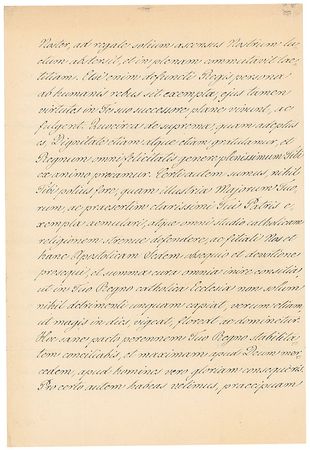 Noster, ad regale solium ascensus Nostrum luc
ctum absterSit, et in plenam commutavit lae
titiam. Licet enim defuncti Regis persona
ab humanis rebus sit exempla, ejus tamen
virtutes in Te suo successore plane vivunt, ac
fulgent. Quocirca de suprema, quam adeptus
es Dignitate etiam atque etiam gratulamur, et
Regnum omni felicitatis genere plenissimum Tibi
ex animo precamur. Certe autem sumus, nihil
Tibi potius fore, quam illustria Majorum Tuo,
rum, ac praesertim clarissimi Tui Patris e,
xempla aemulari, atque omni studio catholicam
religionem strenue defendere, ac filiali Nos et
hanc Apostolicam Sedem obsequio et devotione
prosequi, et summa cura omnia inire consilia,
ut in Tuo Regno catholica Ecclesia non solum
nihil detrimenti unquam capiat, verum etiam
ut magis in dies vigeat, floreat ac dominetur.
Hoc sane pacto perennem Tuo Regno stabilita
tem conciliabis, et maximam apud Deum mer,
cedem, apud homines vero gloriam consequeris.
Pro certo autem habeas velimus, praecipuam